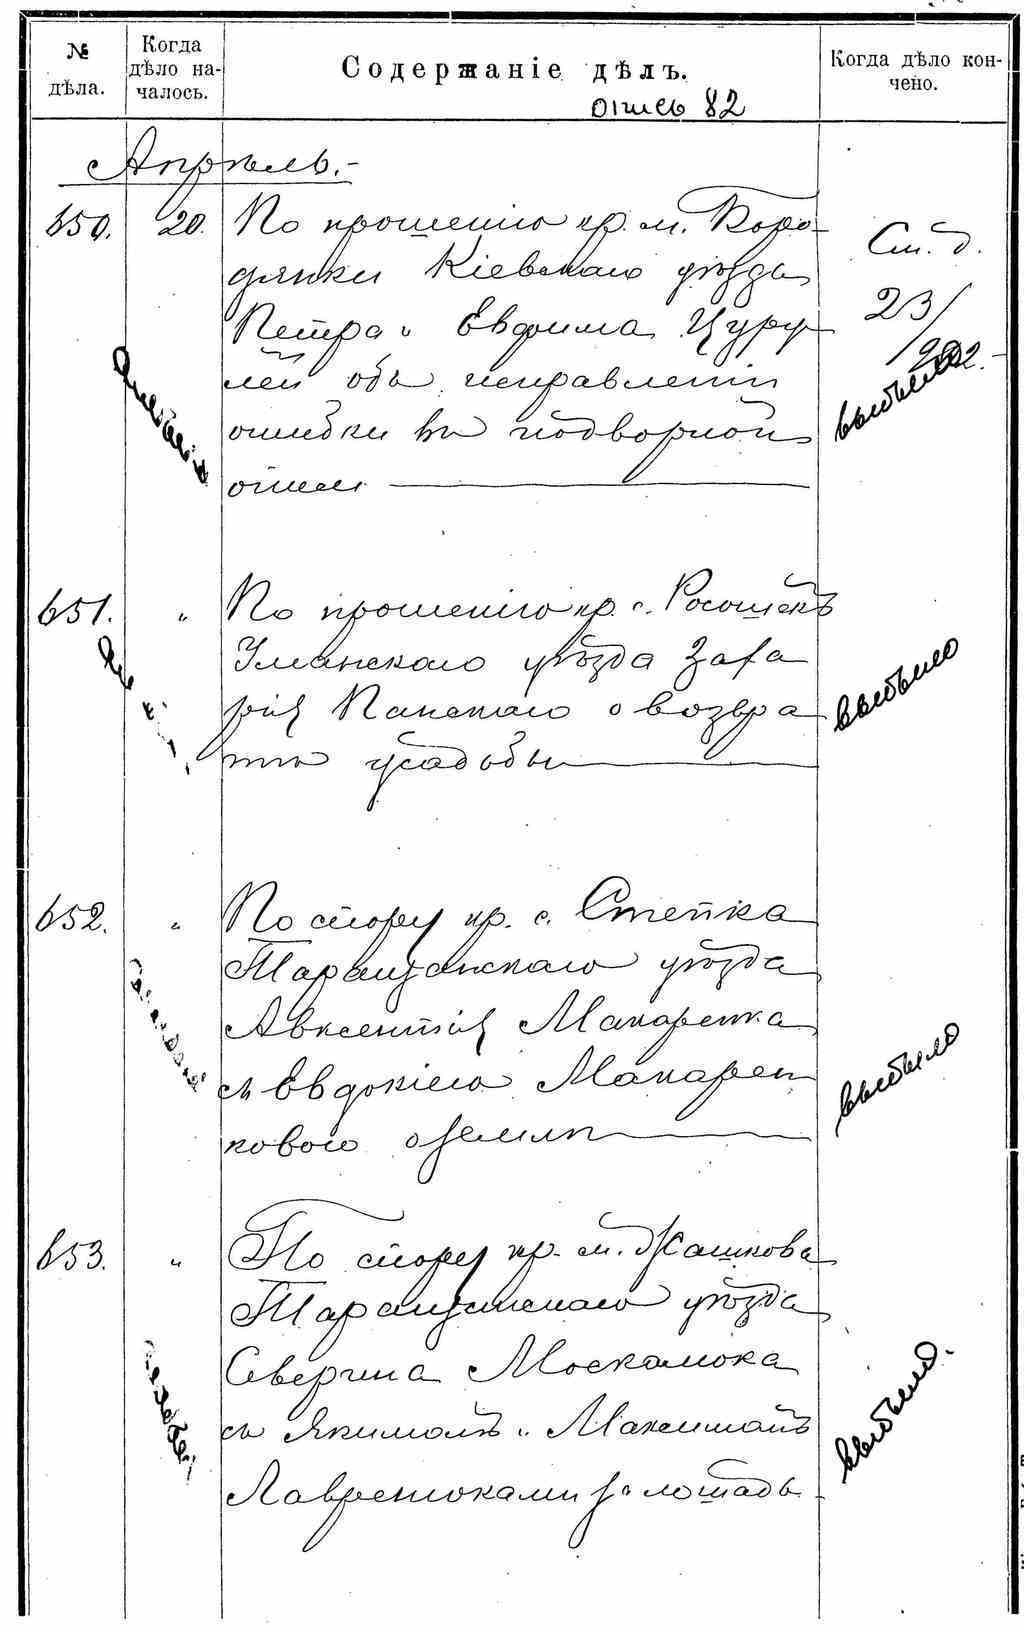 № дѣла.
Когда дѣло на-
чалось.
Содержаніе дѣлъ.
Когда дѣло кон-
чено.
опись 82
Апрѣль.-
650. 20. По прошенію кр. м. Боро-
дянки Кіевскаго уѣзда
Петра и Евфима Цуру
лей объ исправленіи
ошибки въ подворной
описи
См. д.
23/
выбыло
651. " По прошенію кр. с. Росошекъ
Уманскаго уѣзда Заха
рія Панскаго о возвра
тѣ усадьбы
выбыло
652. " По спору кр. с. Степка
Таращанскаго уѣзда
Авксентія Макаренка
съ Евдокіею Макарен
ковою о землѣ
выбыло
653. " По спору кр. м. Жашкова
Таращанскаго уѣзда
Севергина Москалюка
съ Якимомъ и Максимомъ
Лавренюками за лошадь-
выбыло.